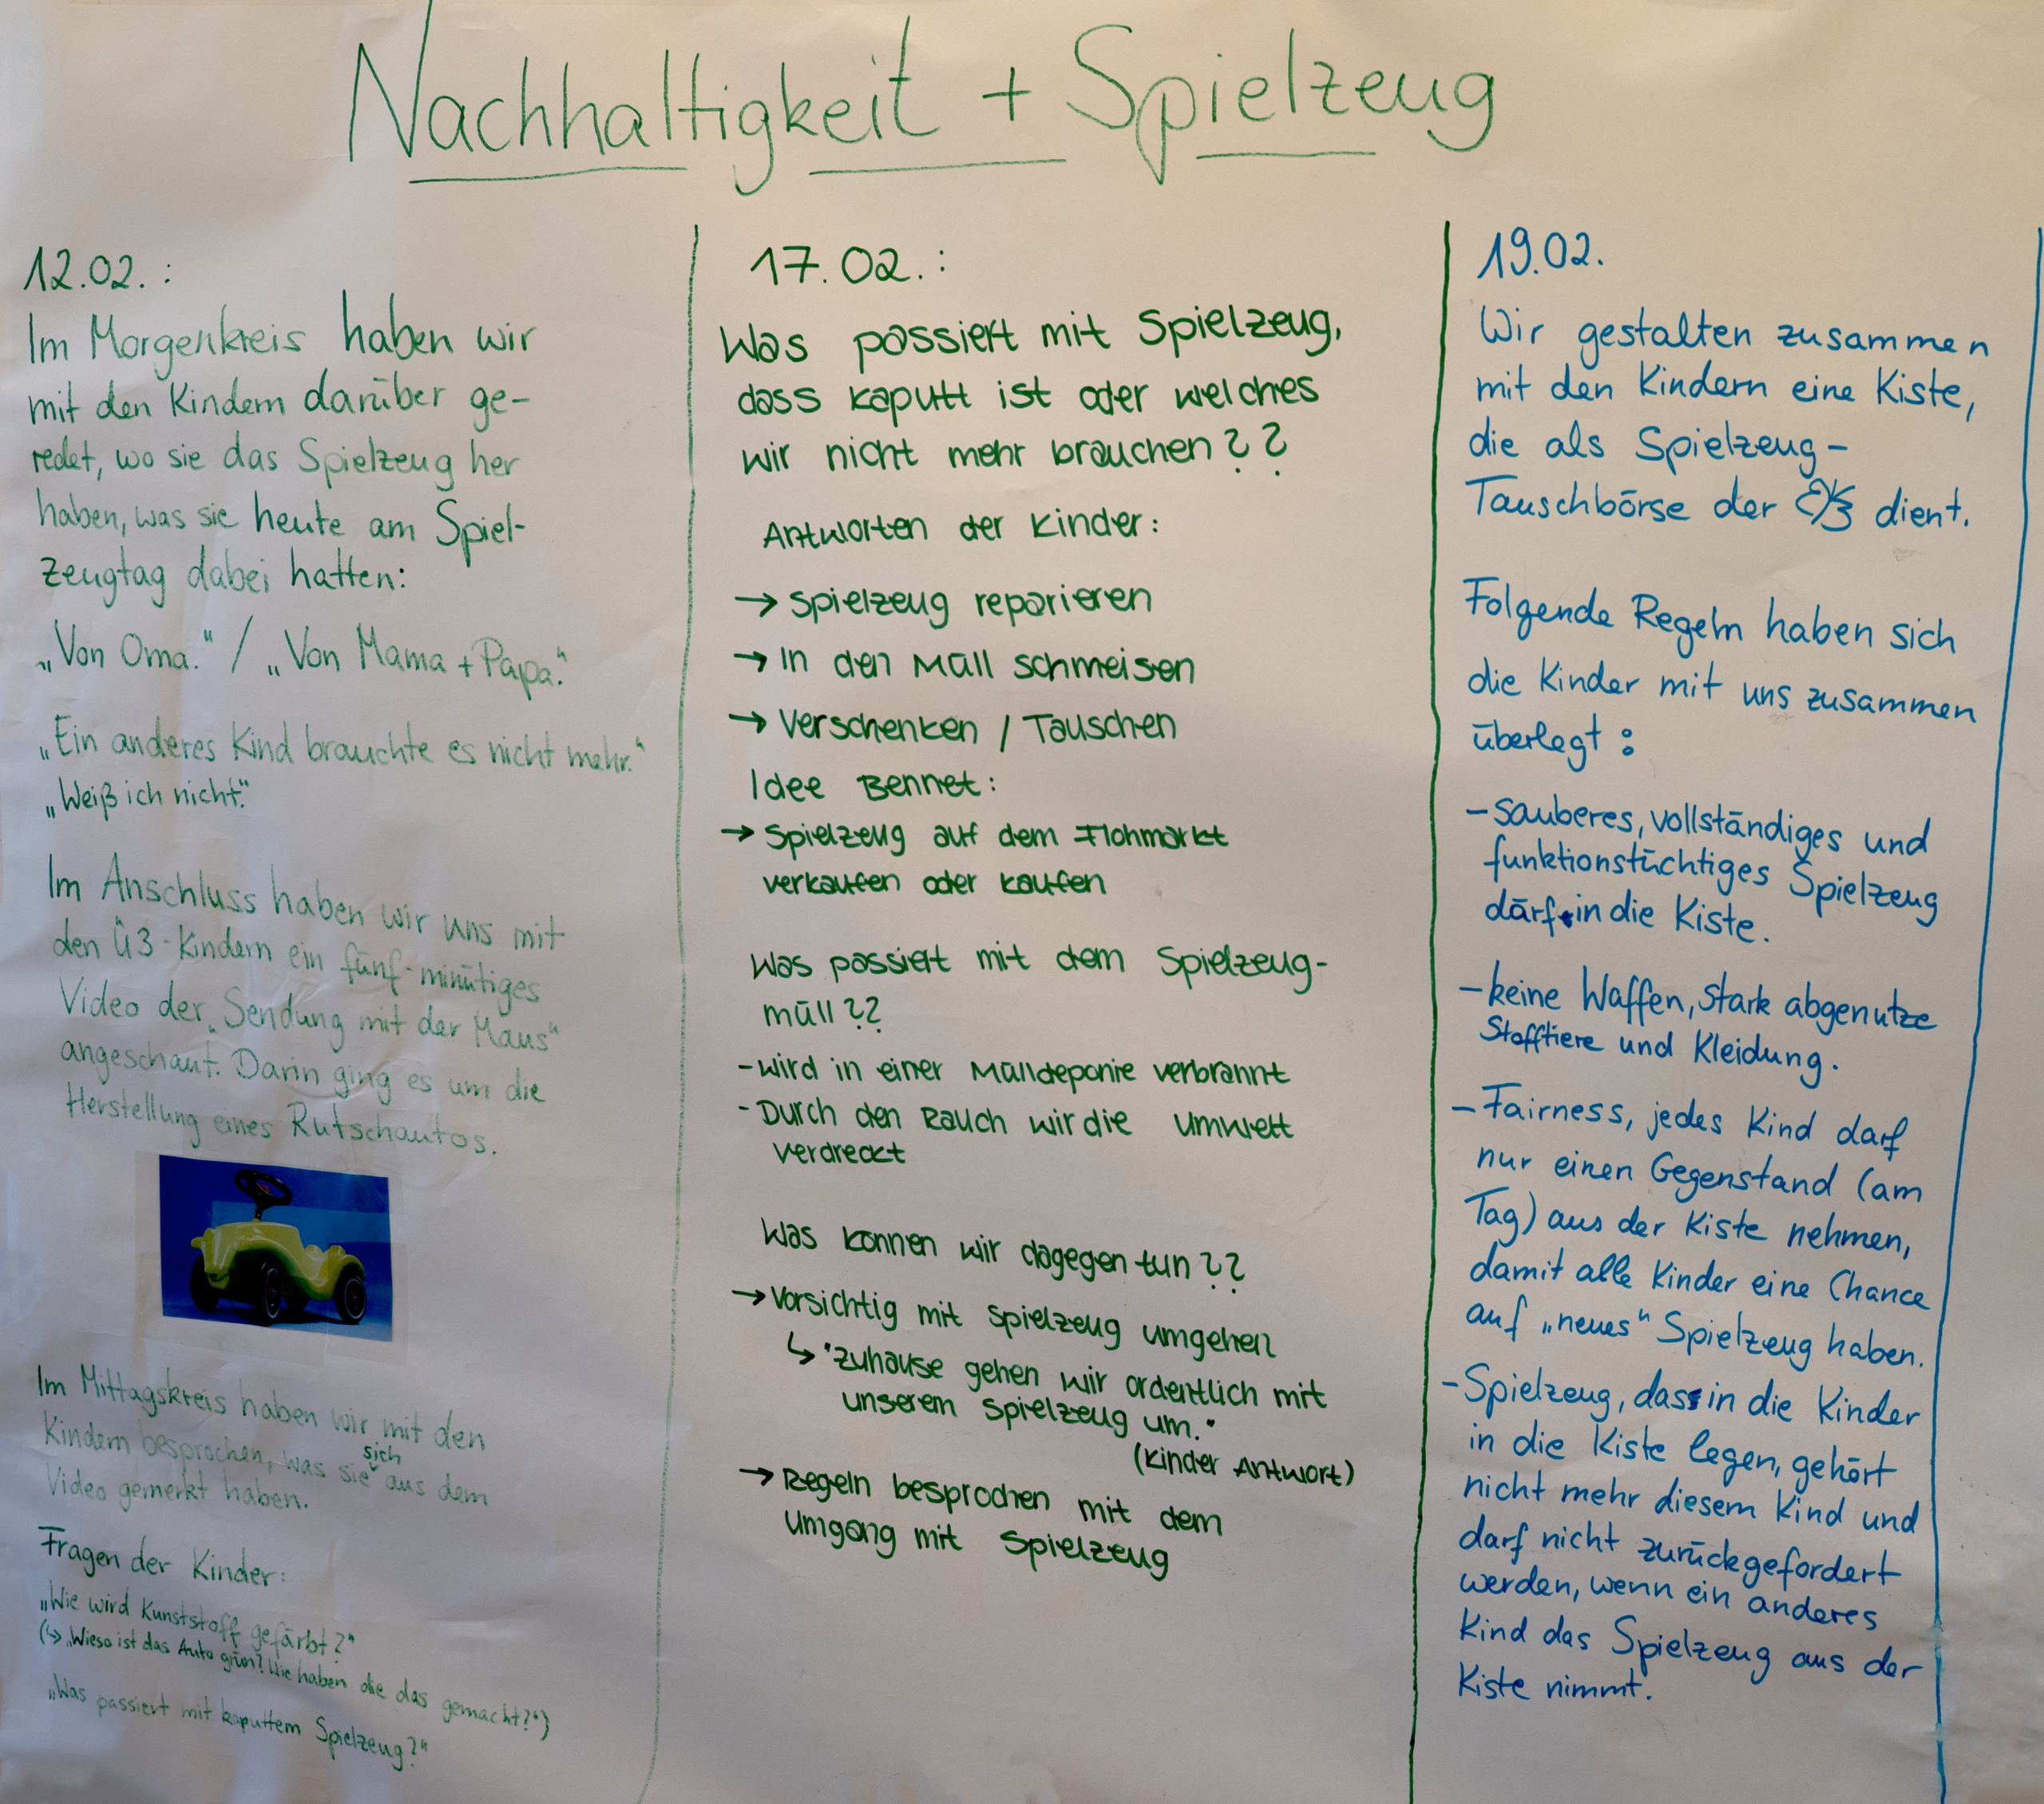 Nachhaltigkeit + Spielzeug
12.02.:
Im Morgenkreis haben wir
mit den Kindern darüber ge-
redet, wo sie das Spielzeug her
haben, was sie heute am Spiel-
zeugtag dabei hatten:
„Von Oma." / „Von Mama + Papa."
„Ein anderes Kind brauchte es nicht mehr."
„Weiß ich nicht."
Im Anschluss haben wir uns mit
den Ü3-Kindern ein fünf-minütiges
Video der „Sendung mit der Maus"
angeschaut. Darin ging es um die
Herstellung eines Rutschautos.
Im Mittagskreis haben wir mit den
Kindern besprochen, was sie sich aus dem
Video gemerkt haben.
Fragen der Kinder:
„Wie wird Kunststoff gefärbt?"
(↳ „Wieso ist das Auto grün? Wie haben die das gemacht?")
„Was passiert mit kaputtem Spielzeug?"
17.02.:
Was passiert mit Spielzeug,
dass kaputt ist oder welches
wir nicht mehr brauchen??
Antworten der Kinder:
→ Spielzeug reparieren
→ In den Müll schmeisen
→ Verschenken / Tauschen
Idee Bennet:
→ Spielzeug auf dem Flohmarkt
verkaufen oder kaufen
Was passiert mit dem Spielzeug-
müll??
- wird in einer Mülldeponie verbrannt
- Durch den Rauch wir die Umwelt
verdreckt
Was können wir dagegen tun??
→ Vorsichtig mit Spielzeug umgehen
↳ "Zuhause gehen wir ordentlich mit
unserem Spielzeug um."
(Kinder Antwort)
→ Regeln besprochen mit dem
Umgang mit Spielzeug
19.02.
Wir gestalten zusammen
mit den Kindern eine Kiste,
die als Spielzeug-
Tauschbörse der dient.
Folgende Regeln haben sich
die Kinder mit uns zusammen
überlegt:
- sauberes, vollständiges und
funktionstüchtiges Spielzeug
darf in die Kiste.
- keine Waffen, stark abgenutze
Stofftiere und Kleidung.
- Fairness, jedes Kind darf
nur einen Gegenstand (am
Tag) aus der Kiste nehmen,
damit alle Kinder eine Chance
auf „neues" Spielzeug haben.
- Spielzeug, das in die Kinder
in die Kiste legen, gehört
nicht mehr diesem Kind und
darf nicht zurückgefordert
werden, wenn ein anderes
Kind das Spielzeug aus der
Kiste nimmt.